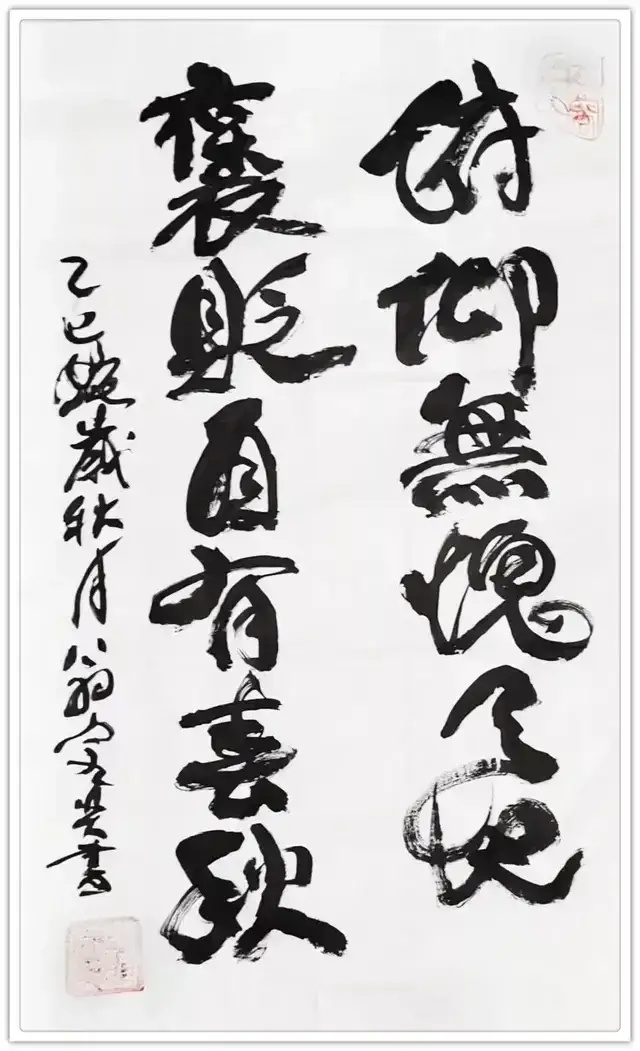 俯仰無愧天地
褒貶自有春秋
乙巳蛇歲秋月八翁書